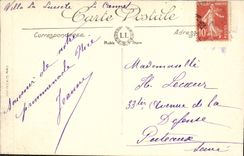 Villa La Luciole Le Cannet
Carte Postale
Correspondance
Adresse
LL
10
Souvenir de notre
promenade Nice
Jeanne
Mademoiselle
H. Lecœur
33bis Avenue de la
Défense
Puteaux
Seine